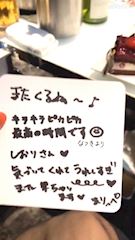 また くるね～♪
キラキラ ピカピカ
最高の時間です☺
なつきより
しおりさん♥
気づいてくれて うれしすぎ♡
また
ます♥